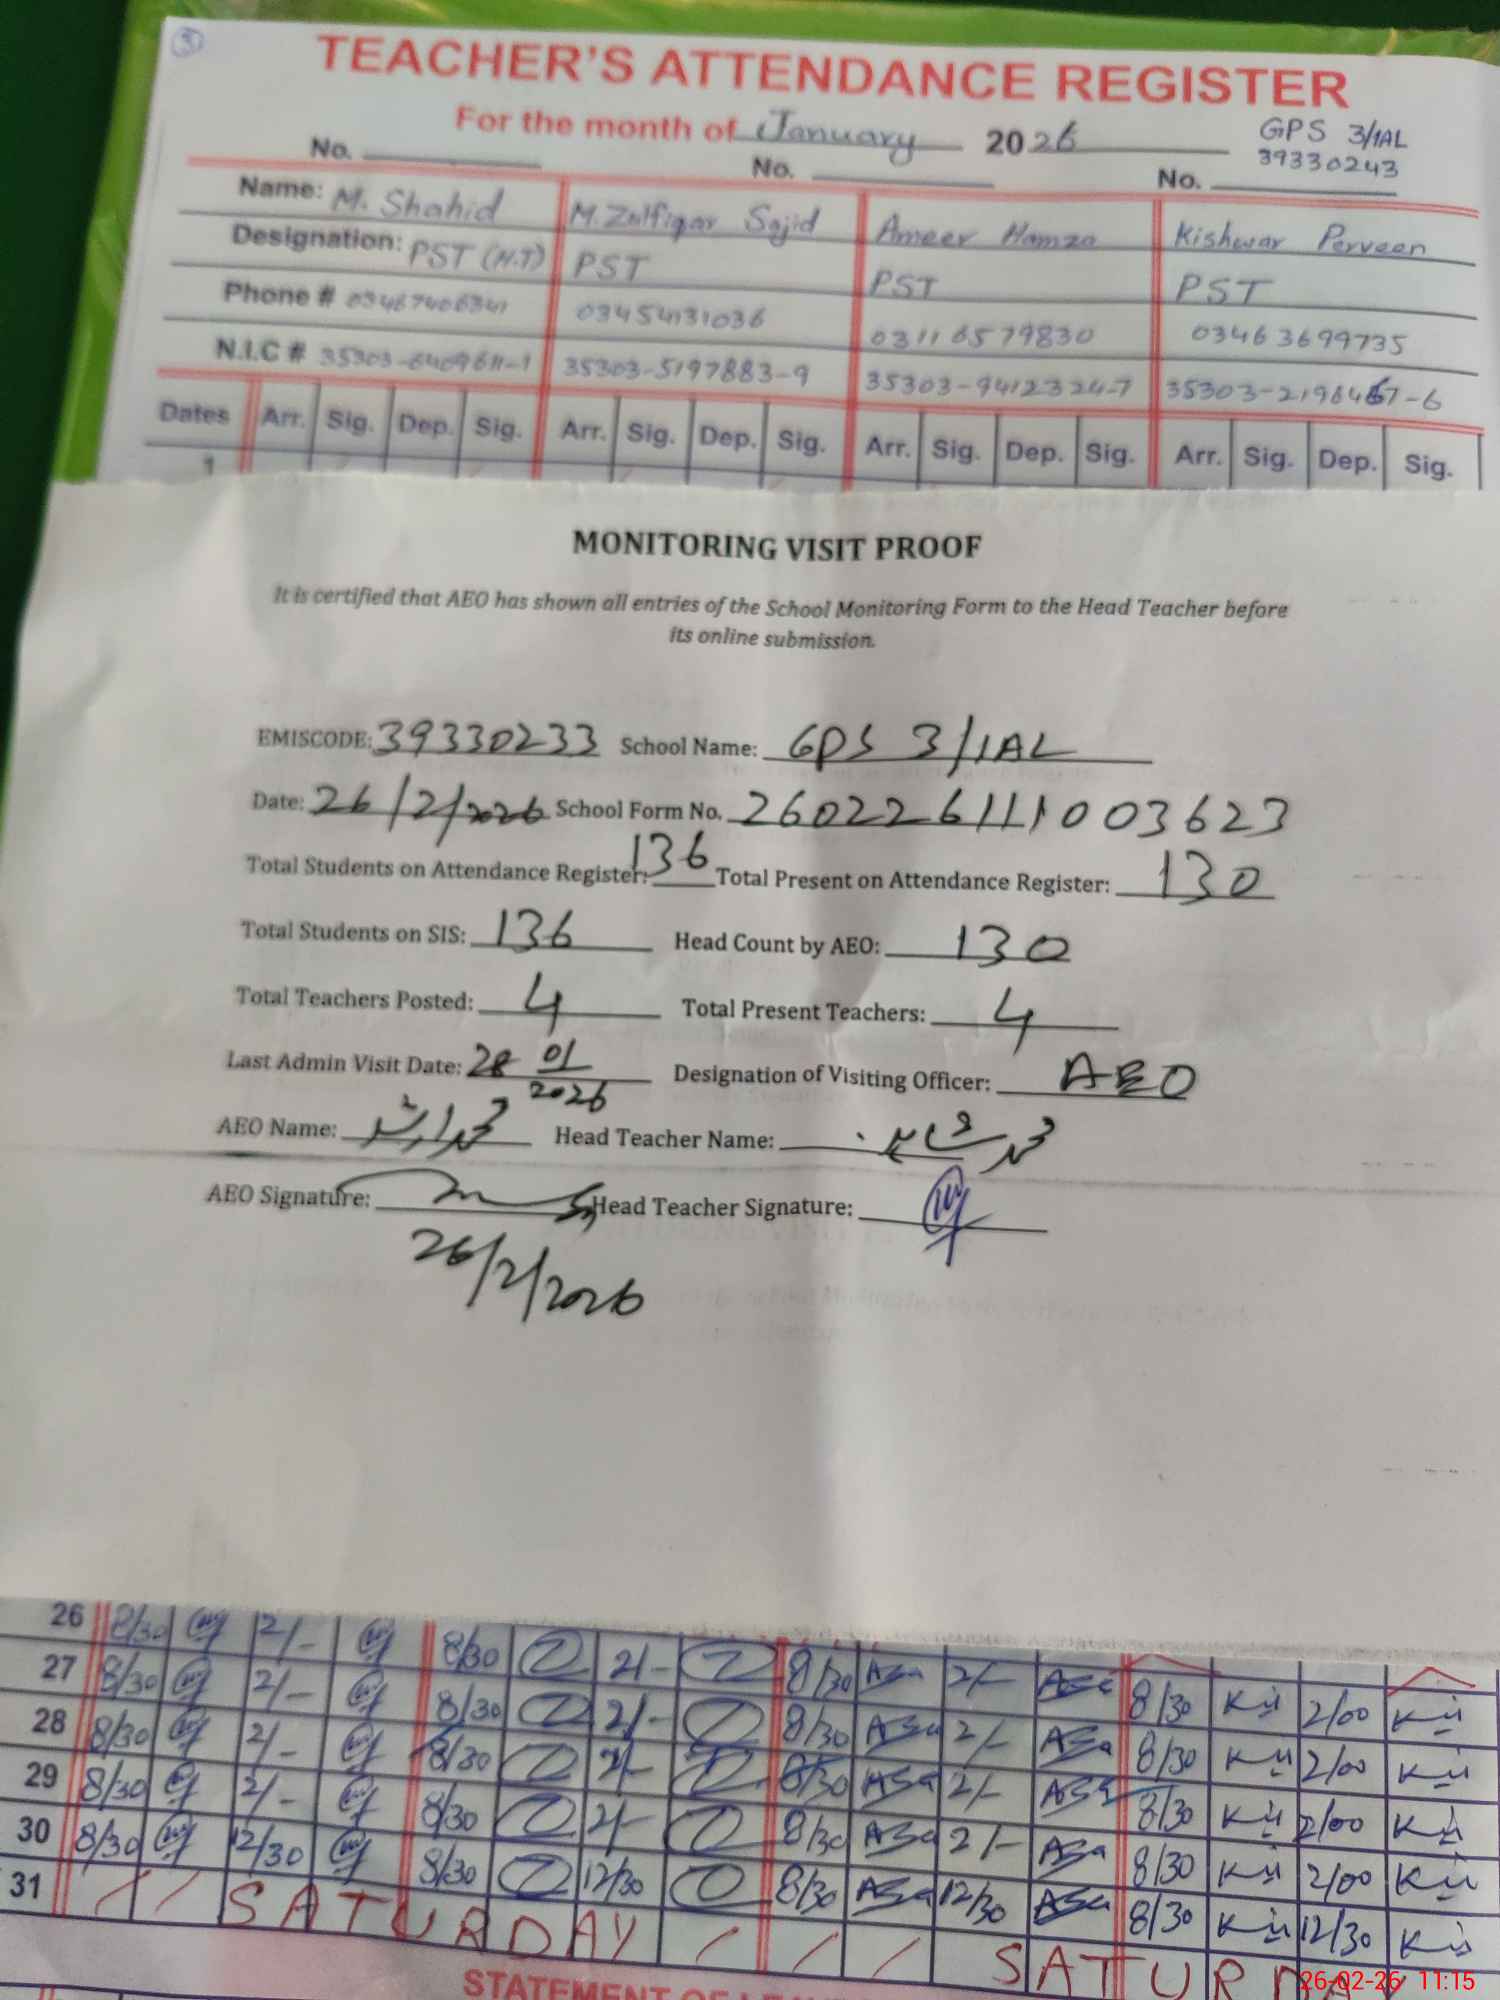 3
TEACHER'S ATTENDANCE REGISTER
For the month of January 2026
GPS 3/1AL
39330243
No. No. No.
Name: M. Shahid M. Zulfiqar Sajid Ameer Hamza Kishwar Perveen
Designation: PST (H.T) PST PST PST
Phone # 03467406341 03454131036 03116579830 03463699735
N.I.C # 35303-6409611-1 35303-5197883-9 35303-9412324-7 35303-2198467-6
Dates Arr. Sig. Dep. Sig. Arr. Sig. Dep. Sig. Arr. Sig. Dep. Sig. Arr. Sig. Dep. Sig.
1
MONITORING VISIT PROOF
It is certified that AEO has shown all entries of the School Monitoring Form to the Head Teacher before
its online submission.
EMISCODE: 39330233 School Name: GPS 3/1AL
Date: 26/2/2026 School Form No. 2602261111003623
Total Students on Attendance Register: 136 Total Present on Attendance Register: 130
Total Students on SIS: 136 Head Count by AEO: 130
Total Teachers Posted: 4 Total Present Teachers: 4
Last Admin Visit Date: 28 01 2026 Designation of Visiting Officer: AEO
AEO Name: محمد راشد Head Teacher Name: محمد شاہد
AEO Signature: Head Teacher Signature:
26/2/2026
26 8/30 2/- 8/30 2/- 8/30 ASa 2/- ASa
27 8/30 2/- 8/30 2/- 8/30 ASa 2/- ASa 8/30 2/00
28 8/30 2/- 8/30 2/- 8/30 ASa 2/- ASa 8/30 2/00
29 8/30 2/- 8/30 2/- 8/30 ASa 2/- ASa 8/30 2/00
30 8/30 12/30 8/30 12/30 8/30 ASa 12/30 ASa 8/30 12/30
31 SATURDAY SATURDAY
STATEMENT OF LEAVE
26-02-26 11:15